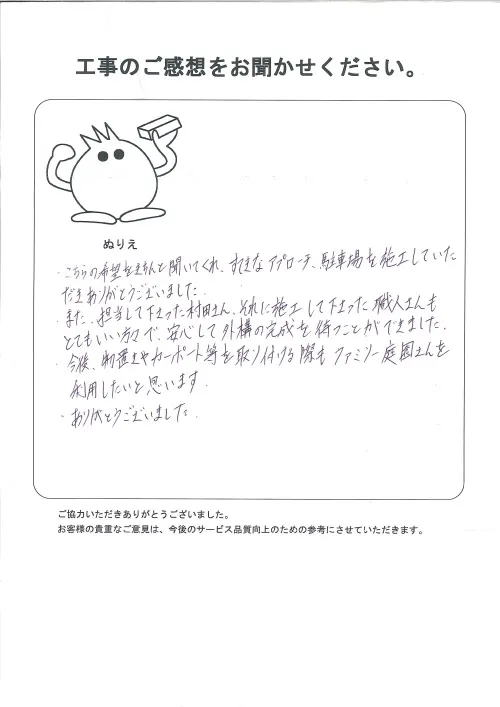 工事のご感想をお聞かせください。
ぬりえ
・こちらの希望をきちんと聞いてくれ、すてきなアプローチ、駐車場を施工していた
だきありがとうございました。
・また、担当して下さった村田さん、それに施工して下さった職人さんも
とてもいい方々で、安心して外構の完成を待つことができました。
・今後、物置きやカーポート等を取り付ける際も ファミリー庭園さんを
利用したいと思います。
・ありがとうございました。
ご協力いただきありがとうございました。
お客様の貴重なご意見は、今後のサービス品質向上のための参考にさせていただきます。